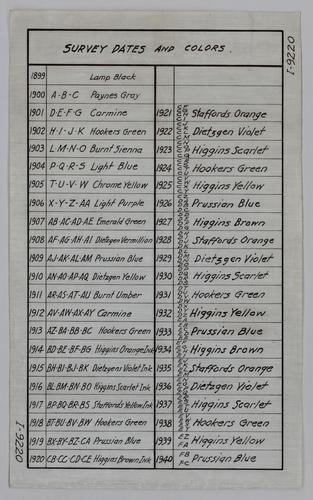 SURVEY DATES AND COLORS.
I-9220
1899 Lamp Black
1900 A-B-C Paynes Gray
1901 D-E-F-G Carmine 1921 Staffords Orange
1902 H-I-J-K Hookers Green 1922 Dietzgen Violet
1903 L-M-N-O Burnt Sienna 1923 Higgins Scarlet
1904 P-Q-R-S Light Blue 1924 Hookers Green
1905 T-U-V-W Chrome Yellow 1925 Higgins Yellow
1906 X-Y-Z-AA Light Purple 1926 Prussian Blue
1907 AB-AC-AD-AE Emerald Green 1927 Higgins Brown
1908 AF-AG-AH-AI Dietzgen Vermillion 1928 Staffords Orange
1909 AJ-AK-AL-AM Prussian Blue 1929 Dietzgen Violet
1910 AN-AO-AP-AQ Dietzgen Yellow 1930 Higgins Scarlet
1911 AR-AS-AT-AU Burnt Umber 1931 Hookers Green
1912 AV-AW-AX-AY Carmine 1932 Higgins Yellow
1913 AZ-BA-BB-BC Hookers Green 1933 Prussian Blue
1914 BD-BE-BF-BG Higgins Orange Ink 1934 Higgins Brown
1915 BH-BI-BJ-BK Dietzgens Violet Ink 1935 Staffords Orange
1916 BL-BM-BN-BO Higgins Scarlet Ink 1936 Dietzgen Violet
1917 BP-BQ-BR-BS Staffords Yellow Ink 1937 Higgins Scarlet
1918 BT-BU-BV-BW Hookers Green 1938 Hookers Green
1919 BX-BY-BZ-CA Prussian Blue 1939 EZ FA Higgins Yellow
1920 CB-CC-CD-CE Higgins Brown Ink 1940 FB FC Prussian Blue
I-9220